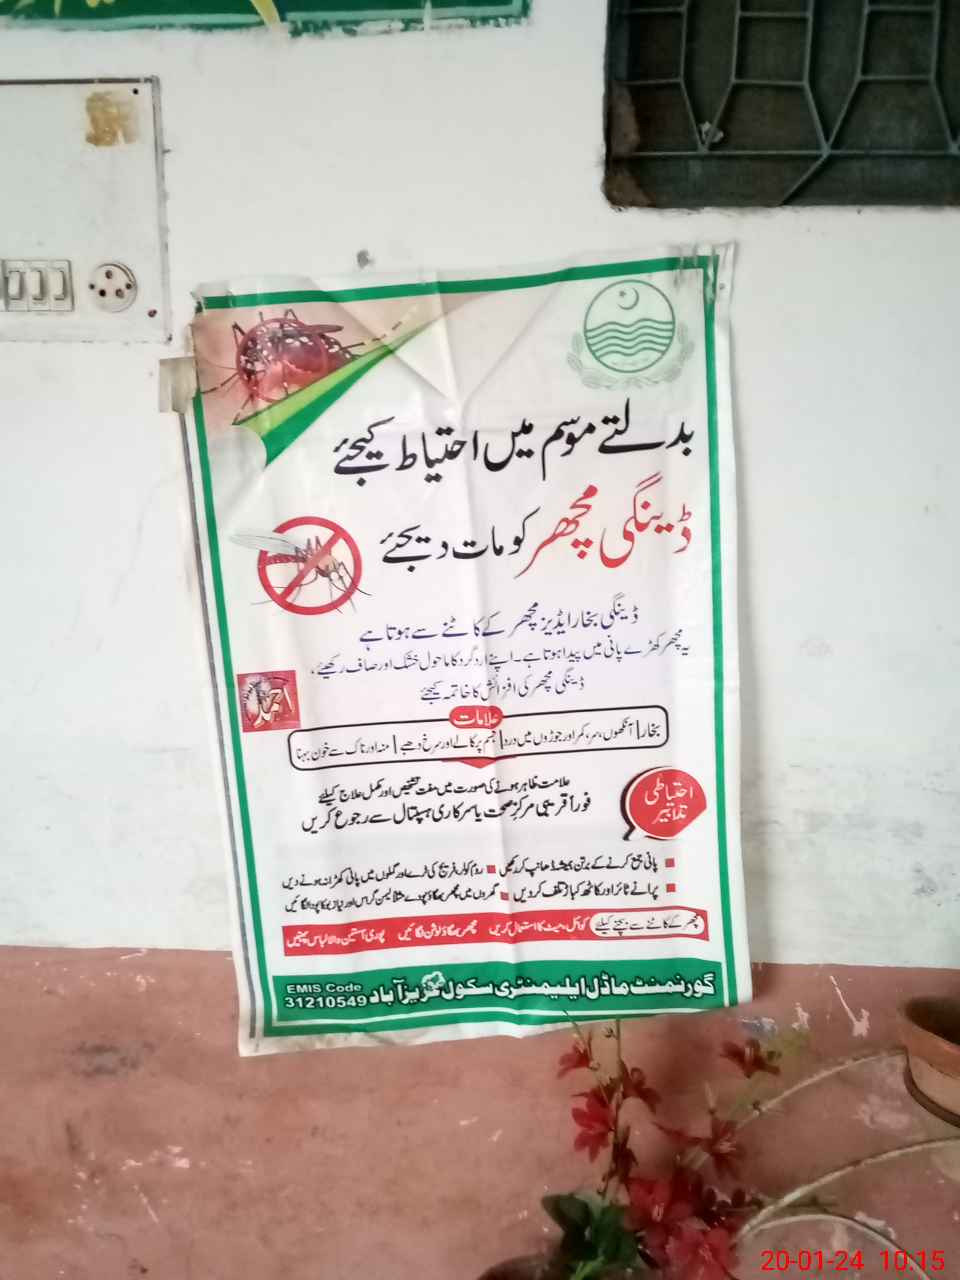 بدلتے موسم میں احتیاط کیجئے
ڈینگی مچھر کو مات دیجئے
ڈینگی بخار ایڈیز مچھر کے کاٹنے سے ہوتا ہے
یہ مچھر کھڑے پانی میں پیدا ہوتا ہے۔ اپنے اردگرد کا ماحول خشک اور صاف رکھیئے،
ڈینگی مچھر کی افزائش کا خاتمہ کیجئے
علامات
بخار | آنکھوں، سر، کمر اور جوڑوں میں درد | جسم پر کالے اور سرخ دھبے | منہ اور ناک سے خون بہنا
احتیاطی تدابیر
علامت ظاہر ہونے کی صورت میں مفت تشخیص اور مکمل علاج کیلئے
فوراً قریبی مرکز صحت یا سرکاری ہسپتال سے رجوع کریں
پانی جمع کرنے کے برتن ہمیشہ ڈھانپ کر رکھیں ■ روم کولر، فریج کی ٹرے اور گملوں میں پانی کھڑا نہ ہونے دیں
پرانے ٹائر اور کاٹھ کباڑ تلف کر دیں ■ گھروں میں مچھر بھگاؤ پودے مثلاً لیمن گراس اور نیازبو کا پودا لگائیں
مچھر کے کاٹنے سے بچنے کیلئے کوائل، میٹ کا استعمال کریں مچھر بھگاؤ لوشن لگائیں پوری آستین والا لباس پہنیں
گورنمنٹ ماڈل ایلیمنٹری سکول عزیز آباد
EMIS Code
31210549
20-01-24 10:15